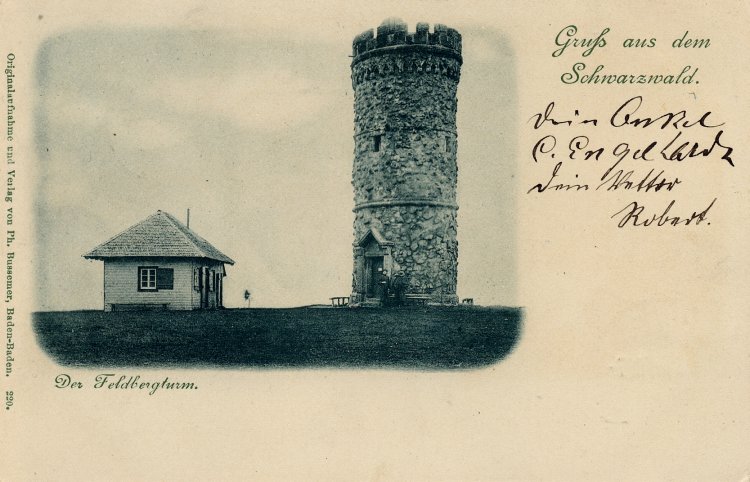 Gruß aus dem
Schwarzwald.
Dein Onkel
C. Engelhardt
Dein Vetter
Robert.
Der Feldbergturm.
Originalaufnahme und Verlag von Ph. Bussemer, Baden-Baden. 220.